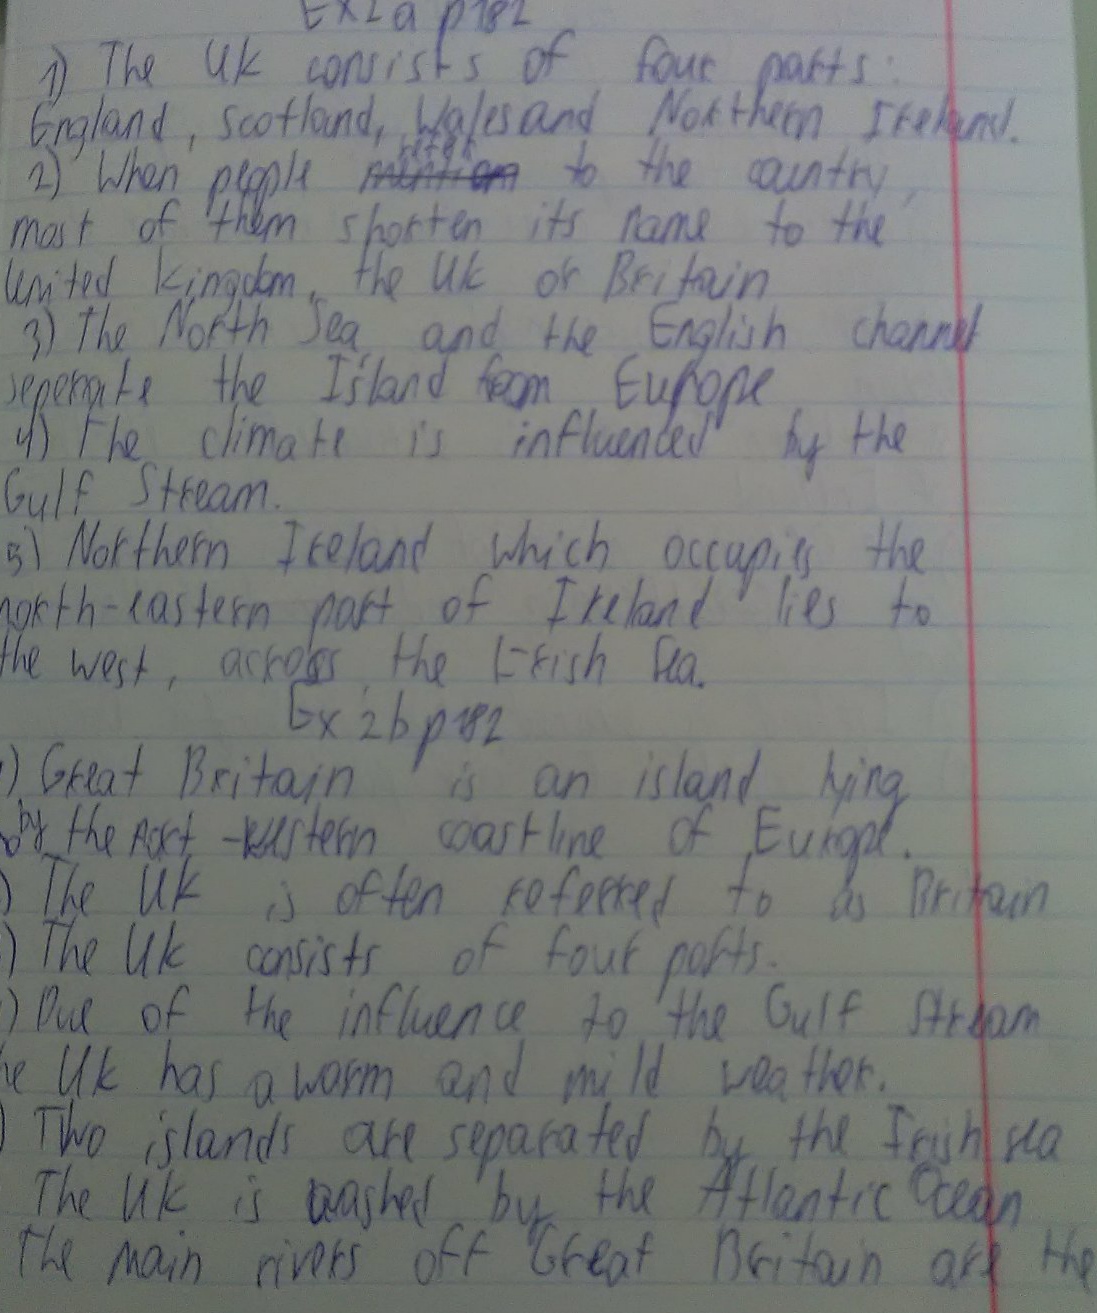 Ex2a p182
1) The UK consists of four parts:
England, Scotland, Wales and Northern Ireland.
2) When people refer to the country,
most of them shorten its name to the
United Kingdom, the UK or Britain
3) The North Sea and the English channel
seperate the Island from Europe
4) The climate is influenced by the
Gulf Stream.
5) Northern Ireland which occupies the
north-eastern part of Ireland lies to
the west, across the Irish Sea.
Ex 2b p182
) Great Britain is an island lying
by the -western coastline of Europe.
) The UK is often referred to as Britain
) The UK consists of four parts.
) Due of the influence to the Gulf Stream
he UK has a warm and mild weather.
) Two islands are separated by the Irish sea
The UK is washed by the Atlantic Ocean
The main rivers off Great Britain are the